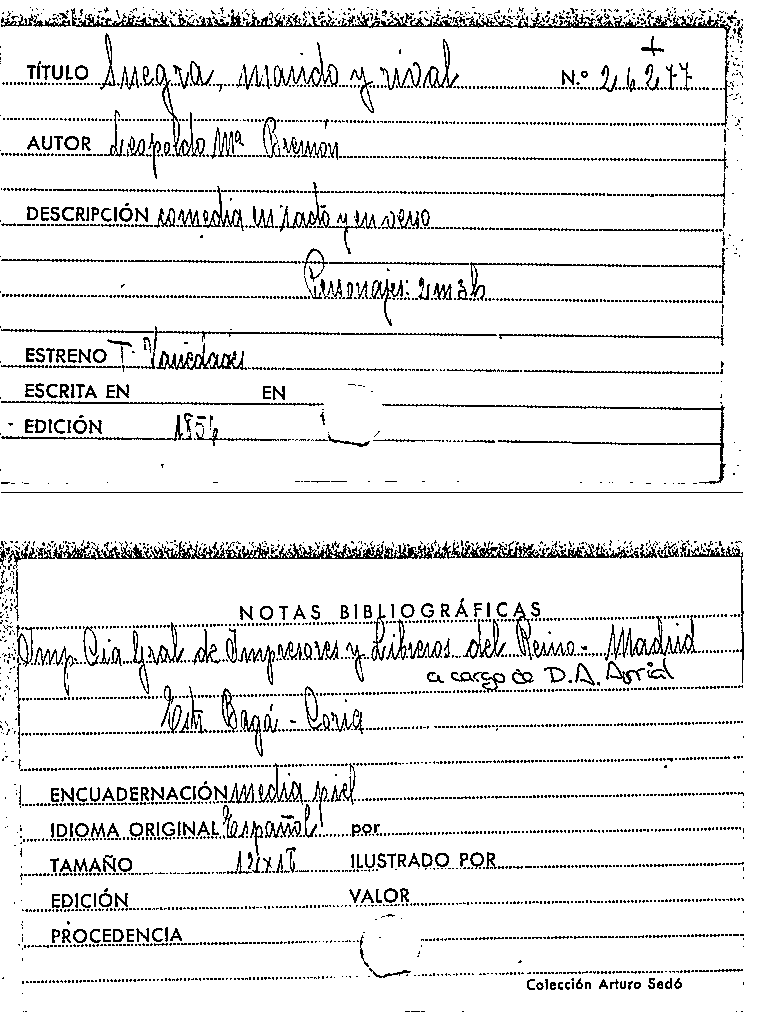 TÍTULO Suegra, marido y rival N.º 26277
AUTOR Leopoldo Mª Bremón
DESCRIPCIÓN comedia en 1 acto y en verso
Personajes: 2m 3h
ESTRENO T. Variedades
ESCRITA EN EN
EDICIÓN 1854
NOTAS BIBLIOGRÁFICAS
Imp Cia Gral de Impresores y Libreros del Reino - Madrid
a cargo de D.A. Avrial
Estr Bagá - Coria
ENCUADERNACIÓN media piel
IDIOMA ORIGINAL Español por
TAMAÑO ILUSTRADO POR
EDICIÓN VALOR
PROCEDENCIA
Colección Arturo Sedó